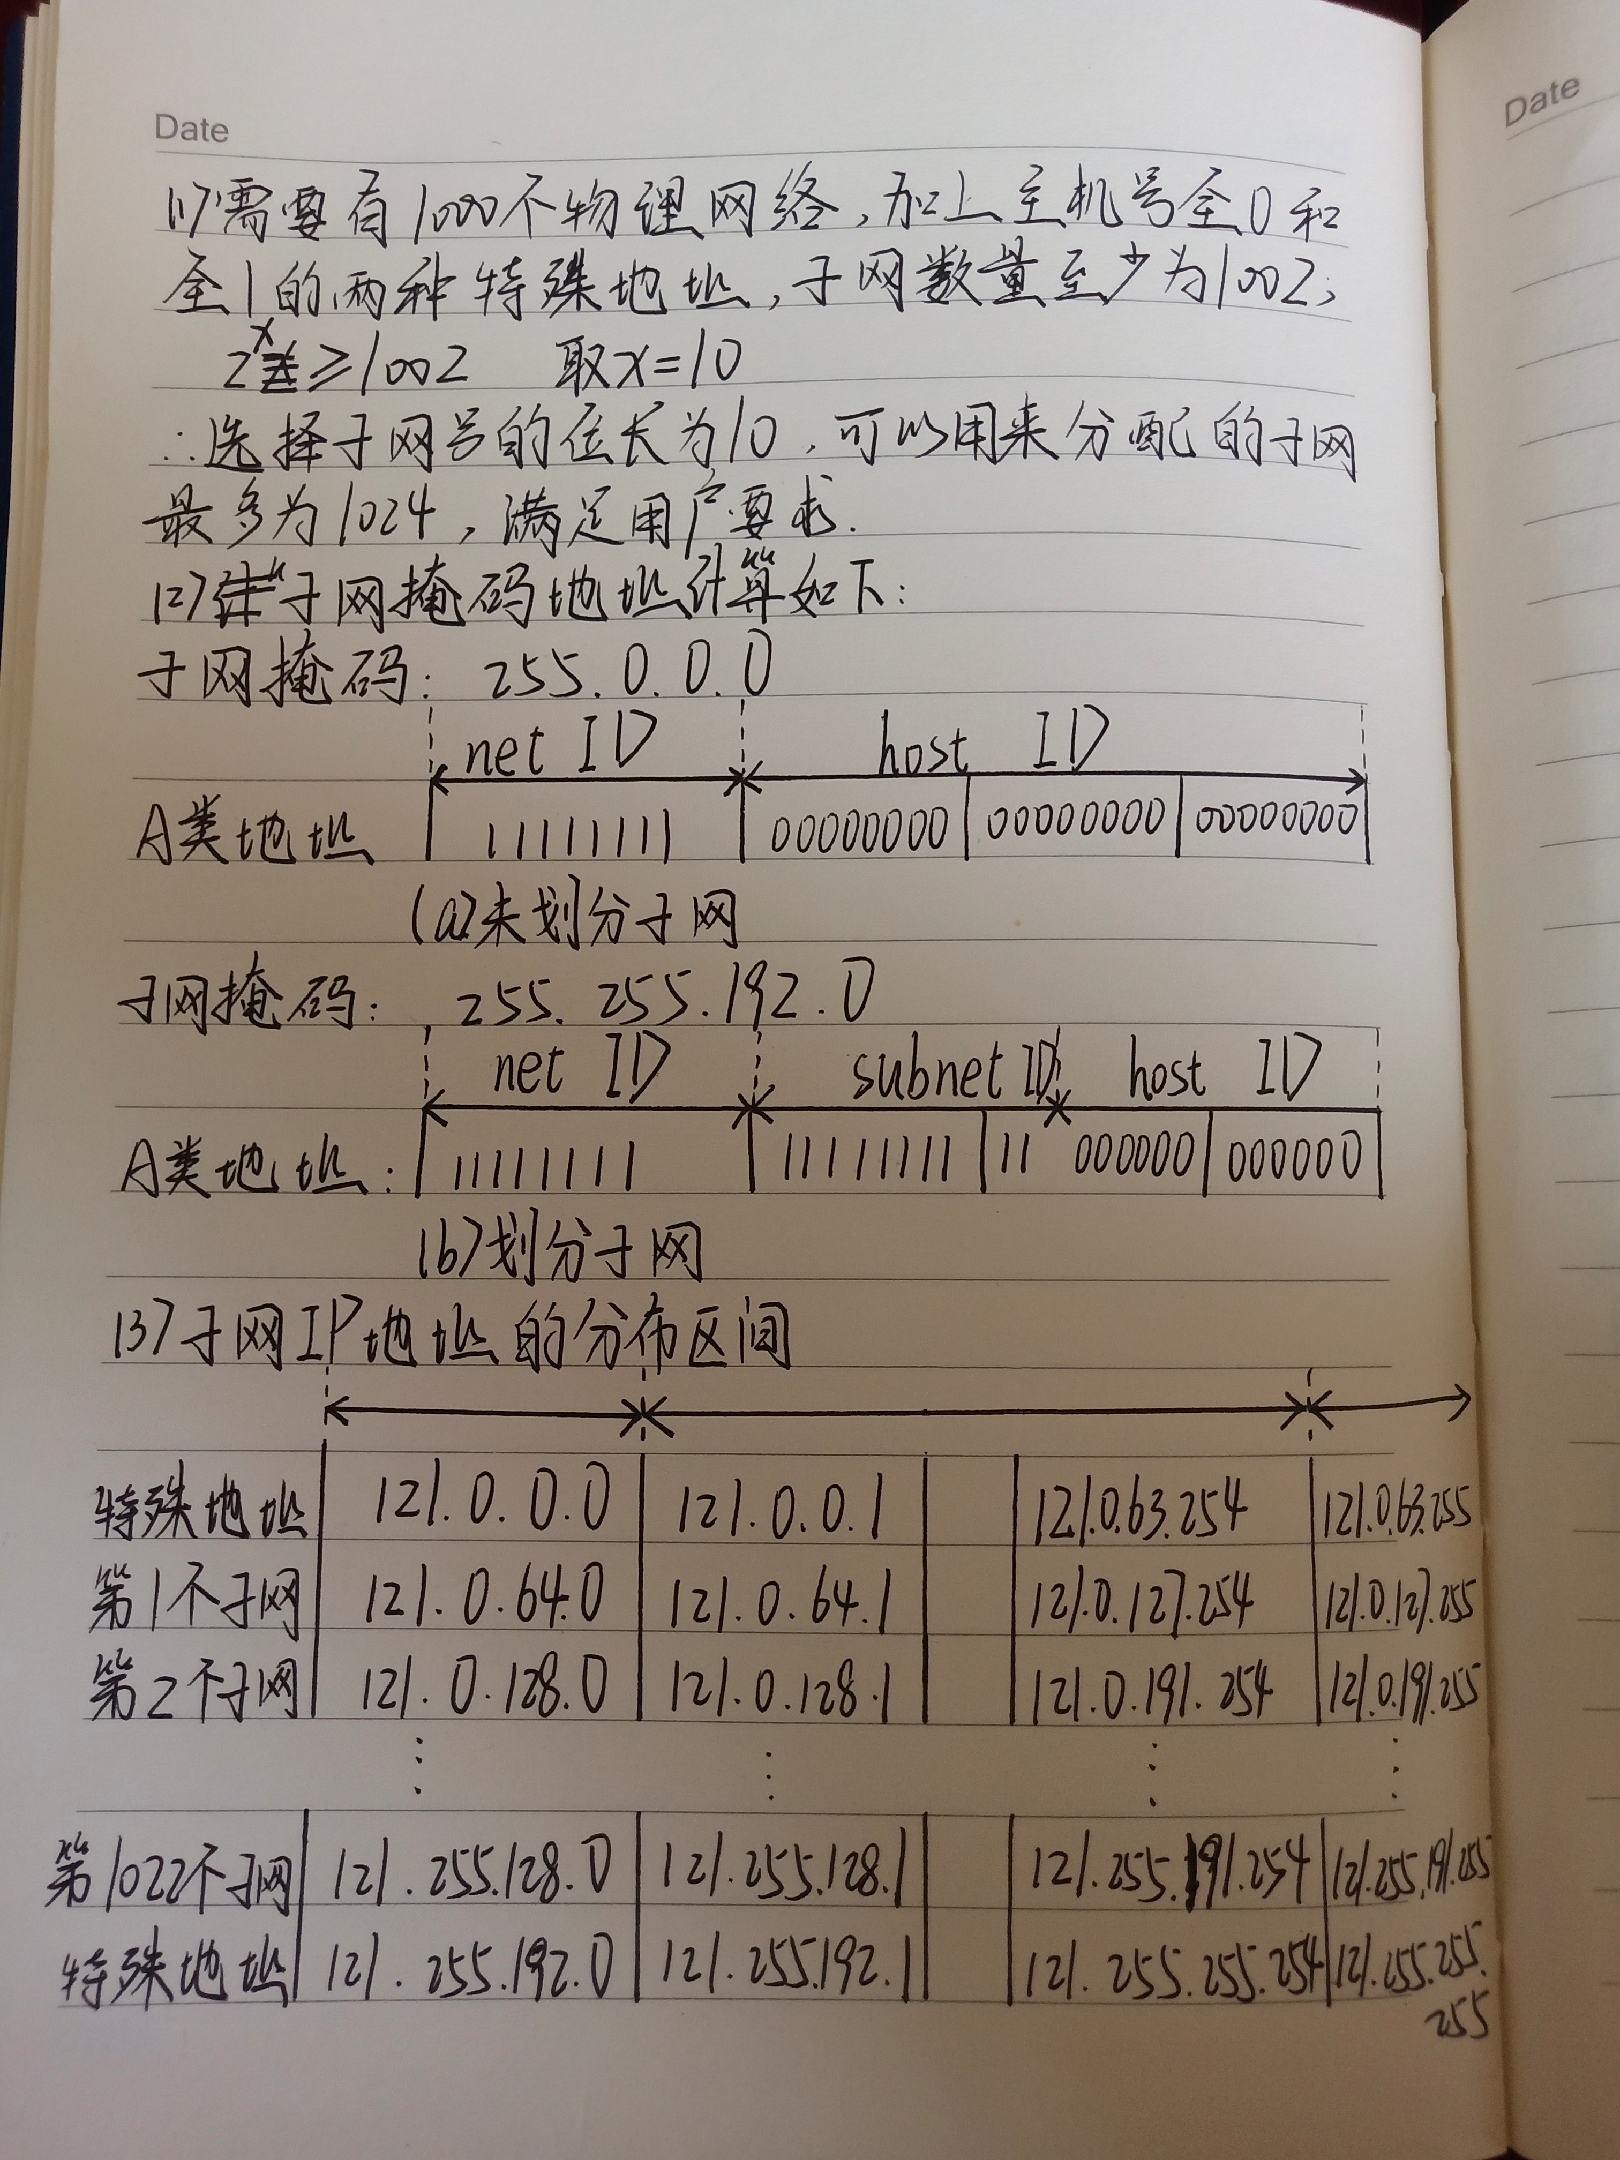 Date
Date
(1)需要有1000个物理网络,加上主机号全0和
全1的两种特殊地址,子网数量至少为1002;
2^x≥1002 取x=10
∴选择子网号的位长为10,可以用来分配的子网
最多为1024,满足用户要求.
(2)子网掩码地址计算如下:
子网掩码: 255.0.0.0
net ID host ID
A类地址 11111111 00000000 00000000 00000000
(a)未划分子网
子网掩码: 255.255.192.0
net ID subnet ID host ID
A类地址: 11111111 11111111 11 000000 000000
(b)划分子网
(3)子网IP地址的分布区间
特殊地址 121.0.0.0 121.0.0.1 121.0.63.254 121.0.63.255
第1个子网 121.0.64.0 121.0.64.1 121.0.127.254 121.0.127.255
第2个子网 121.0.128.0 121.0.128.1 121.0.191.254 121.0.191.255
⋮ ⋮ ⋮ ⋮
第1022个子网 121.255.128.0 121.255.128.1 121.255.191.254 121.255.191.255
特殊地址 121.255.192.0 121.255.192.1 121.255.255.254 121.255.255.
255